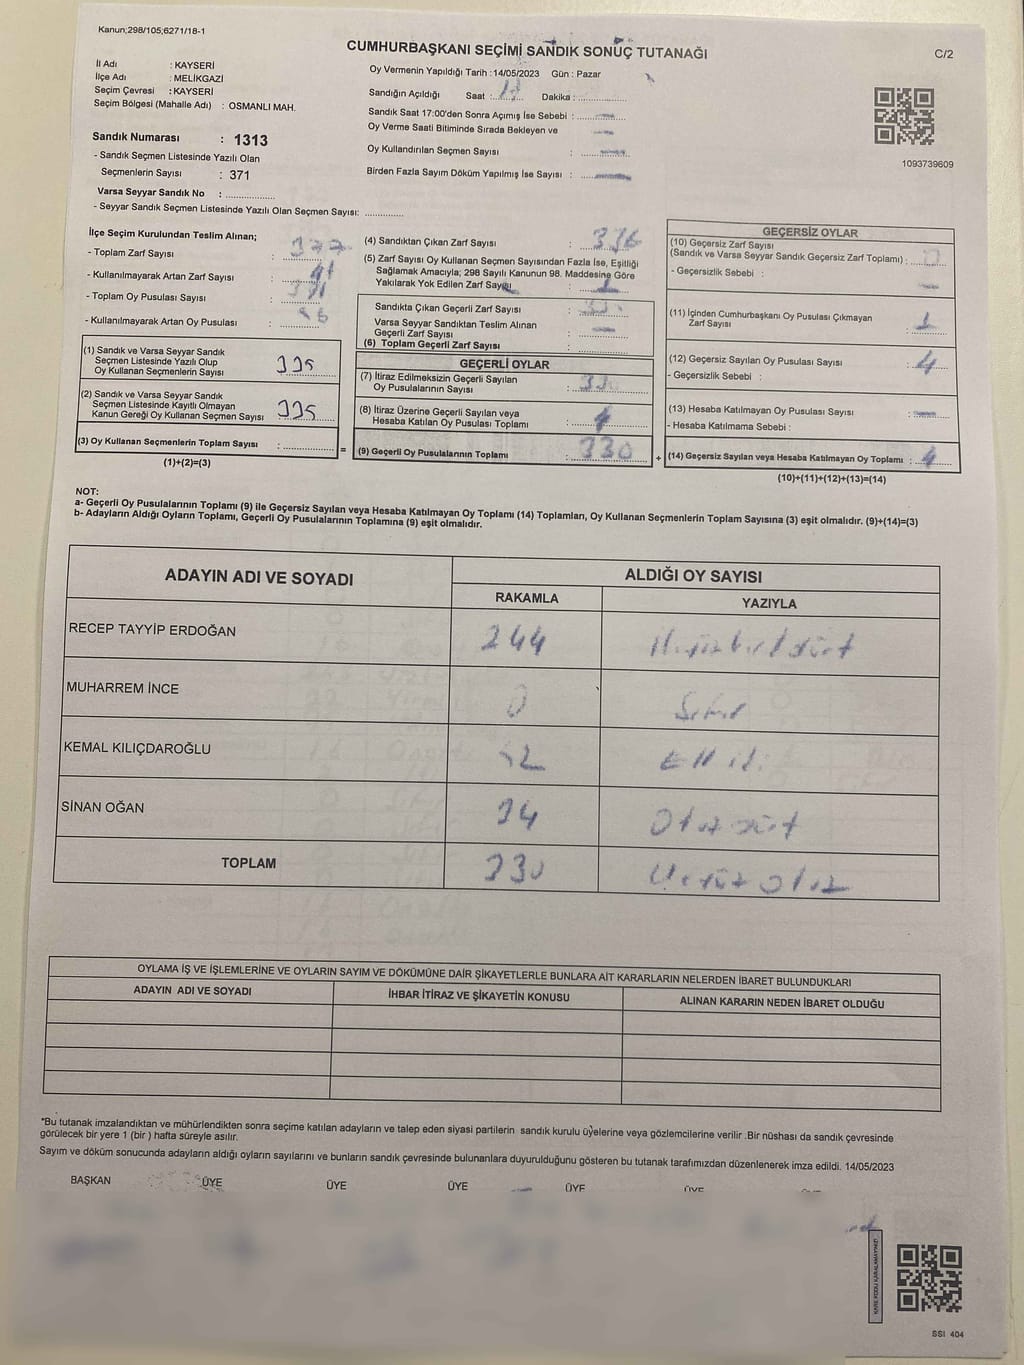 Kanun;298/105;6271/18-1
CUMHURBAŞKANI SEÇİMİ SANDIK SONUÇ TUTANAĞI
C/2
İl Adı : KAYSERİ
İlçe Adı : MELİKGAZİ
Seçim Çevresi : KAYSERİ
Seçim Bölgesi (Mahalle Adı) : OSMANLI MAH.
Sandık Numarası : 1313
- Sandık Seçmen Listesinde Yazılı Olan
Seçmenlerin Sayısı : 371
Varsa Seyyar Sandık No : ..................
- Seyyar Sandık Seçmen Listesinde Yazılı Olan Seçmen Sayısı: ..............
Oy Vermenin Yapıldığı Tarih : 14/05/2023 Gün : Pazar
Sandığın Açıldığı Saat : Dakika : ..................
Sandık Saat 17:00'den Sonra Açımış İse Sebebi :
Oy Verme Saati Bitiminde Sırada Bekleyen ve
Oy Kullandırılan Seçmen Sayısı :
Birden Fazla Sayım Döküm Yapılmış İse Sayısı :
1093739609
İlçe Seçim Kurulundan Teslim Alınan;
- Toplam Zarf Sayısı : 377
- Kullanılmayarak Artan Zarf Sayısı :
- Toplam Oy Pusulası Sayısı :
- Kullanılmayarak Artan Oy Pusulası :
(1) Sandık ve Varsa Seyyar Sandık
Seçmen Listesinde Yazılı Olup
Oy Kullanan Seçmenlerin Sayısı 335
(2) Sandık ve Varsa Seyyar Sandık
Seçmen Listesinde Kayıtlı Olmayan
Kanun Gereği Oy Kullanan Seçmen Sayısı 335
(3) Oy Kullanan Seçmenlerin Toplam Sayısı : ..............
=
(1)+(2)=(3)
(4) Sandıktan Çıkan Zarf Sayısı : 336
(5) Zarf Sayısı Oy Kullanan Seçmen Sayısından Fazla İse, Eşitliği
Sağlamak Amacıyla; 298 Sayılı Kanunun 98. Maddesine Göre
Yakılarak Yok Edilen Zarf Sayısı : 1
Sandıkta Çıkan Geçerli Zarf Sayısı :
Varsa Seyyar Sandıktan Teslim Alınan
Geçerli Zarf Sayısı :
(6) Toplam Geçerli Zarf Sayısı : ..............
GEÇERLİ OYLAR
(7) İtiraz Edilmeksizin Geçerli Sayılan
Oy Pusulalarının Sayısı : 330
(8) İtiraz Üzerine Geçerli Sayılan veya
Hesaba Katılan Oy Pusulası Toplamı :
(9) Geçerli Oy Pusulalarının Toplamı : 330
+
GEÇERSİZ OYLAR
(10) Geçersiz Zarf Sayısı
(Sandık ve Varsa Seyyar Sandık Geçersiz Zarf Toplamı) :
- Geçersizlik Sebebi :
(11) İçinden Cumhurbaşkanı Oy Pusulası Çıkmayan
Zarf Sayısı : 1
(12) Geçersiz Sayılan Oy Pusulası Sayısı : 4
- Geçersizlik Sebebi :
(13) Hesaba Katılmayan Oy Pusulası Sayısı :
- Hesaba Katılmama Sebebi :
(14) Geçersiz Sayılan veya Hesaba Katılmayan Oy Toplamı : 4
(10)+(11)+(12)+(13)=(14)
NOT:
a- Geçerli Oy Pusulalarının Toplamı (9) ile Geçersiz Sayılan veya Hesaba Katılmayan Oy Toplamı (14) Toplamları, Oy Kullanan Seçmenlerin Toplam Sayısına (3) eşit olmalıdır. (9)+(14)=(3)
b- Adayların Aldığı Oyların Toplamı, Geçerli Oy Pusulalarının Toplamına (9) eşit olmalıdır.
ADAYIN ADI VE SOYADI
ALDIĞI OY SAYISI
RAKAMLA YAZIYLA
RECEP TAYYİP ERDOĞAN 244
MUHARREM İNCE 0 Sıfır
KEMAL KILIÇDAROĞLU 52 Elli iki
SİNAN OĞAN 34 Otuz dört
TOPLAM 330 Üçyüz otuz
OYLAMA İŞ VE İŞLEMLERİNE VE OYLARIN SAYIM VE DÖKÜMÜNE DAİR ŞİKAYETLERLE BUNLARA AİT KARARLARIN NELERDEN İBARET BULUNDUKLARI
ADAYIN ADI VE SOYADI İHBAR İTİRAZ VE ŞİKAYETİN KONUSU ALINAN KARARIN NEDEN İBARET OLDUĞU
*Bu tutanak imzalandıktan ve mühürlendikten sonra seçime katılan adayların ve talep eden siyasi partilerin sandık kurulu üyelerine veya gözlemcilerine verilir .Bir nüshası da sandık çevresinde
görülecek bir yere 1 (bir ) hafta süreyle asılır.
Sayım ve döküm sonucunda adayların aldığı oyların sayılarını ve bunların sandık çevresinde bulunanlara duyurulduğunu gösteren bu tutanak tarafımızdan düzenlenerek imza edildi. 14/05/2023
BAŞKAN ÜYE ÜYE ÜYE ÜYE ÜYE
KARE KODU KARALAMAYINIZ!
SSI 404